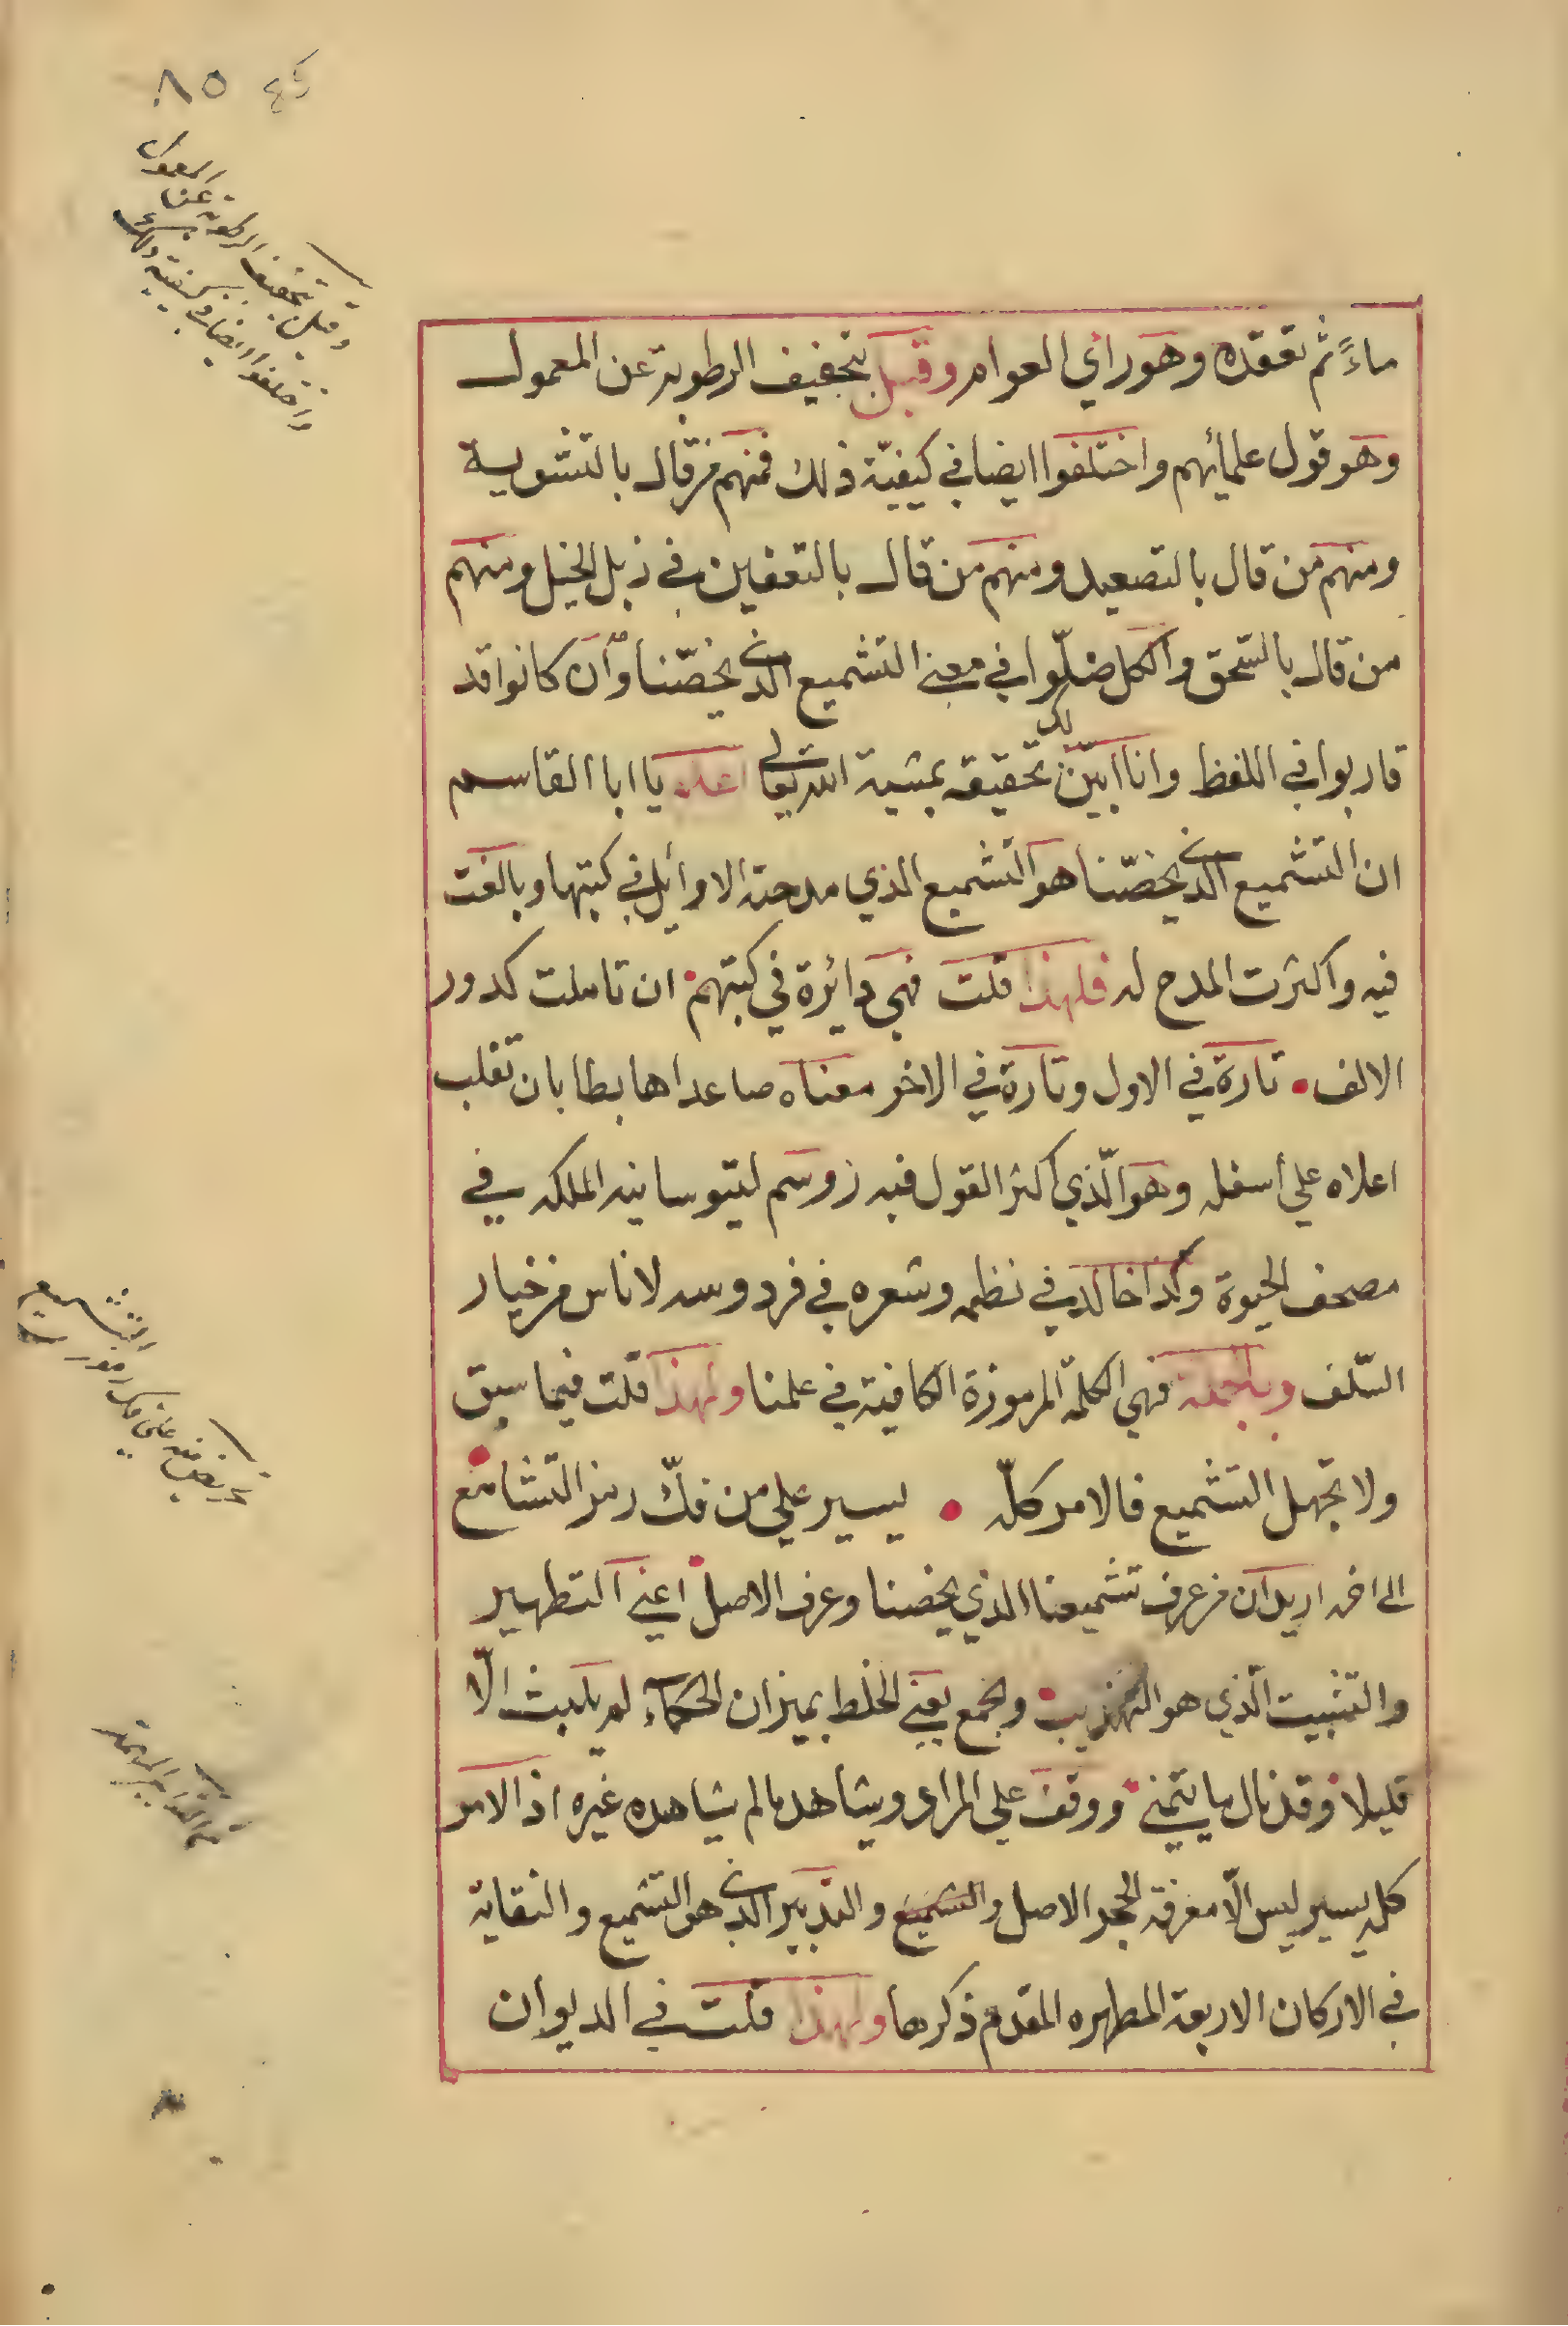 ٨٥
وقيل بتجفيف الرطوبة عن المعمول
واختلفوا ايضا في كيفية ذلك
ماءً ثم تعقده وهو راي العوام وقيل بتجفيف الرطوبة عن المعمول
وهو قول علمائهم واختلفوا ايضا في كيفيّة ذلك فمنهم من قال بالتشوية
ومنهم من قال بالتصعيد ومنهم من قال بالتعفين في زبل الخيل ومنهم
من قال بالسّحق والكل ضلّوا في معنى التشميع الذي يخصّنا وان كانوا قد
قاربوا في اللفظ وانا ابيّن لك تحقيقه بمشية الله تعالى اعلم يا ابا القاسم
ان التشميع الذي يخصّنا هو التشميع الذي مدحته الاوائل في كتبها وبالغت
فيه واكثرت المدح له فلهذا قلت فهي دائرة في كتبهم ان تاملت كدور
الالف تارة في الاول وتارة في الاخر معناه صاعدا هابطا بان تقلب
اعلاه على أسفله وهو الّذي أكثر القول فيه زوسم لتيوسانيه الملكه في
مصحف الحيوة وكذا خالد في نظمه وشعره في فردوسه لاناس من خيار
السّلف وبالجملة فهي الكلمة المرموزة الكافية في علمنا ولهذا قلت فيما سبق
ولا تجهل التشميع فالامر كلّه يسير على من فكّ رمز التشامع
الى اخره اريد ان من عرف تشميعنا الذي يخصنا وعرف الاصل اعني التطهير
والتثبيت الّذي هو التهذيب والجمع يعني الخلط بميزان الحكماء لم يلبث الّا
قليلا وقد نال ما يتمنى ووقف على المراد ويشاهد ما لم يشاهده غيره اذ الامر
كله يسير ليس الّا معرفة الحجر الاصل والتشميع والتدبير الذي هو التشميع والنقاية
في الاركان الاربعة المطهره المقدم ذكرها ولهذا قلت في الديوان